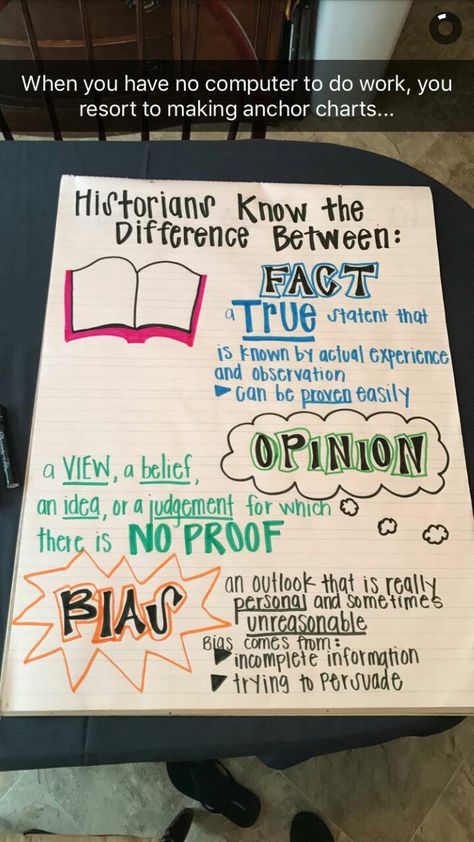 When you have no computer to do work, you
resort to making anchor charts...
Historians Know the
Difference Between:
FACT
a TRUE statent that
is known by actual experience
and observation
▶ can be proven easily
OPINION
a VIEW, a belief,
an idea, or a judgement for which
there is NO PROOF
BIAS
an outlook that is really
personal and sometimes
unreasonable
Bias comes from:
▶ incomplete information
▶ trying to persuade